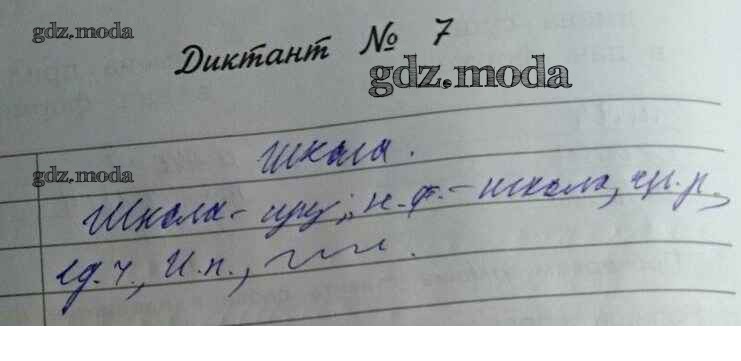 gdz.moda
Диктант № 7
gdz.moda
Школа.
gdz.moda
Школа - н.ф. - школа,
ед.ч., И.п.,